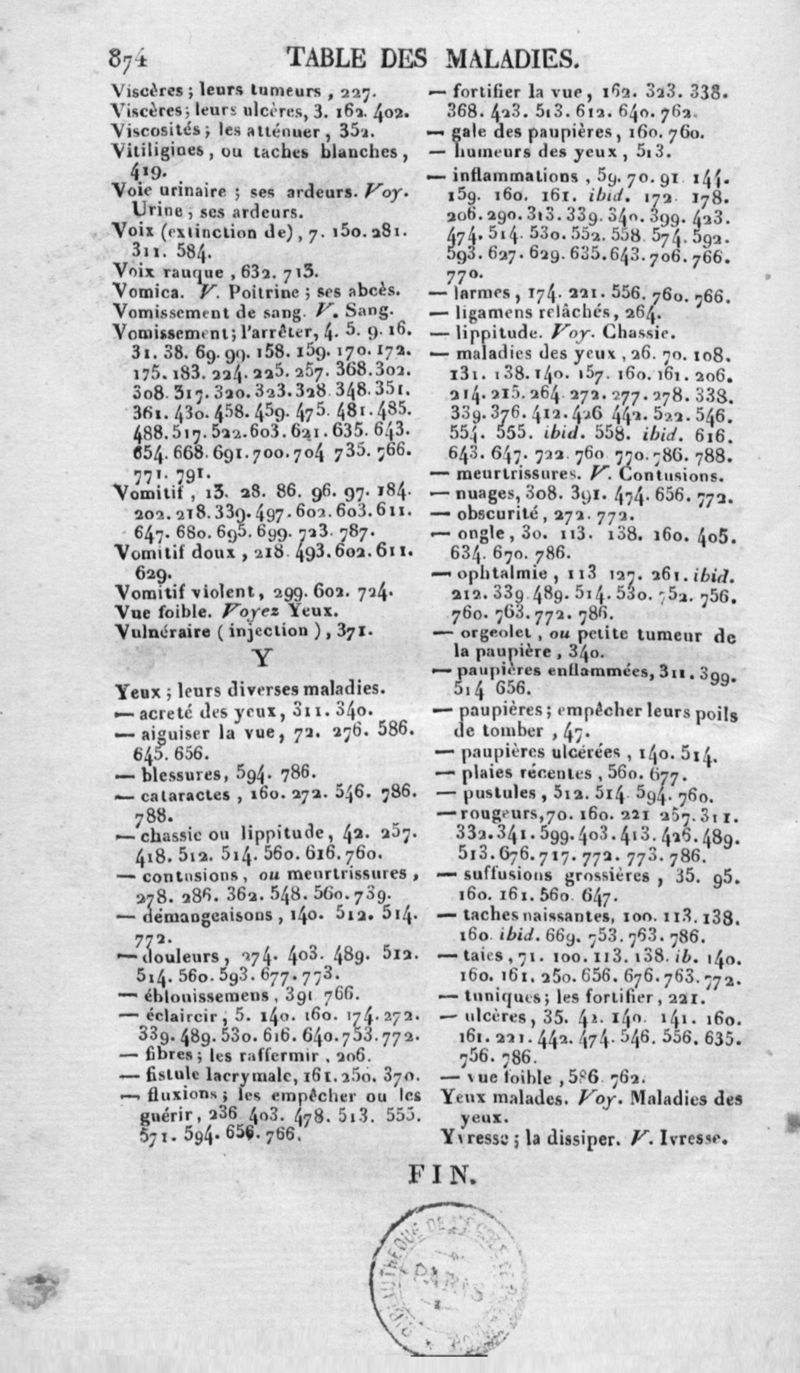 874 TABLE DES MALADIES.
Viscères ; leurs tumeurs , 227.
Viscères ; leurs ulcères, 3. 162. 402.
Viscosités ; les atténuer , 352.
Vitiligines , ou taches blanches ,
419.
Voie urinaire ; ses ardeurs. Voy.
Urine ; ses ardeurs.
Voix (extinction de) , 7. 150. 281.
311. 584.
Voix rauque , 632. 713.
Vomica. V. Poitrine ; ses abcès.
Vomissement de sang. V. Sang.
Vomissement ; l'arrêter, 4. 5. 9. 16.
31. 38. 69. 99. 158. 159. 170. 172.
175. 183. 224. 225. 257. 368. 302.
308. 317. 320. 323. 328 348. 351.
361. 430. 458. 459. 475. 481. 485.
488. 517. 522. 603. 621. 635. 643.
654. 668. 691. 700. 704 735. 766.
771. 791.
Vomitif , 13. 28. 86. 96. 97. 184.
202. 218. 339. 497. 602. 603. 611.
647. 680. 695. 699. 723. 787.
Vomitif doux , 218 493. 602. 611.
629.
Vomitif violent, 299. 602. 724.
Vue foible. Voyez Yeux.
Vulnéraire ( injection ) , 371.
Y
Yeux ; leurs diverses maladies.
— acreté des yeux, 311. 340.
— aiguiser la vue, 72. 276. 586.
645. 656.
— blessures, 594. 786.
— cataractes , 160. 272. 546. 786.
788.
— chassie ou lippitude, 42. 257.
418. 512. 514. 560. 616. 760.
— contusions , ou meurtrissures ,
278. 286. 362. 548. 560. 739.
— démangeaisons , 140. 512. 514.
772.
— douleurs, 274. 403. 489. 512.
514. 560. 593. 677. 773.
— éblouissemens , 391 766.
— éclaircir , 5. 140. 160. 174. 272.
339. 489. 530. 616. 640. 753. 772.
— fibres ; les raffermir , 206.
— fistule lacrymale, 161. 250. 370.
— fluxions ; les empêcher ou les
guérir, 236 403. 478. 513. 555.
571. 594. 656. 766.
— fortifier la vue, 162. 323. 338.
368. 423. 513. 612. 640. 762.
— gale des paupières, 160. 760.
— humeurs des yeux , 513.
— inflammations , 59. 70. 91 144.
159. 160. 161. ibid. 172 178.
206. 290. 313. 339. 340. 399. 423.
474. 514. 530. 552. 558 574. 592.
593. 627. 629. 635. 643. 706. 766.
770.
— larmes, 174. 221. 556. 760. 766.
— ligamens relâchés, 264.
— lippitude. Voy. Chassie.
— maladies des yeux , 26. 70. 108.
131. 138. 140. 157. 160. 161. 206.
214. 215. 264 272. 277. 278. 338.
339. 376. 412. 426 442. 522. 546.
554. 555. ibid. 558. ibid. 616.
643. 647. 722 760 770. 786. 788.
— meurtrissures. V. Contusions.
— nuages, 308. 391. 474. 656. 772.
— obscurité, 272. 772.
— ongle, 30. 113. 138. 160. 405.
634. 670. 786.
— ophtalmie , 113 127. 261. ibid.
212. 339 489. 514. 530. 752. 756.
760. 763. 772. 786.
— orgeolet , ou petite tumeur de
la paupière , 340.
— paupières enflammées, 311. 399.
514 656.
— paupières ; empêcher leurs poils
de tomber , 47.
— paupières ulcérées , 140. 514.
— plaies récentes , 560. 677.
— pustules , 512. 514 594. 760.
— rougeurs, 70. 160. 221 257. 311.
332. 341. 399. 403. 413. 426. 489.
513. 676. 717. 772. 773. 786.
— suffusions grossières , 35. 95.
160. 161. 560 647.
— taches naissantes, 100. 113. 138.
160 ibid. 669. 753. 763. 786.
— taies , 71. 100. 113. 138. ib. 140.
160. 161. 250. 656. 676. 763. 772.
— tuniques ; les fortifier, 221.
— ulcères, 35. 42. 140 141. 160.
161. 221. 442. 474. 546. 556. 635.
756. 786.
— vue foible , 586 762.
Yeux malades. Voy. Maladies des
yeux.
Yvresse ; la dissiper. V. Ivresse.
FIN.
BIBLIOTHEQUE DE
PARIS